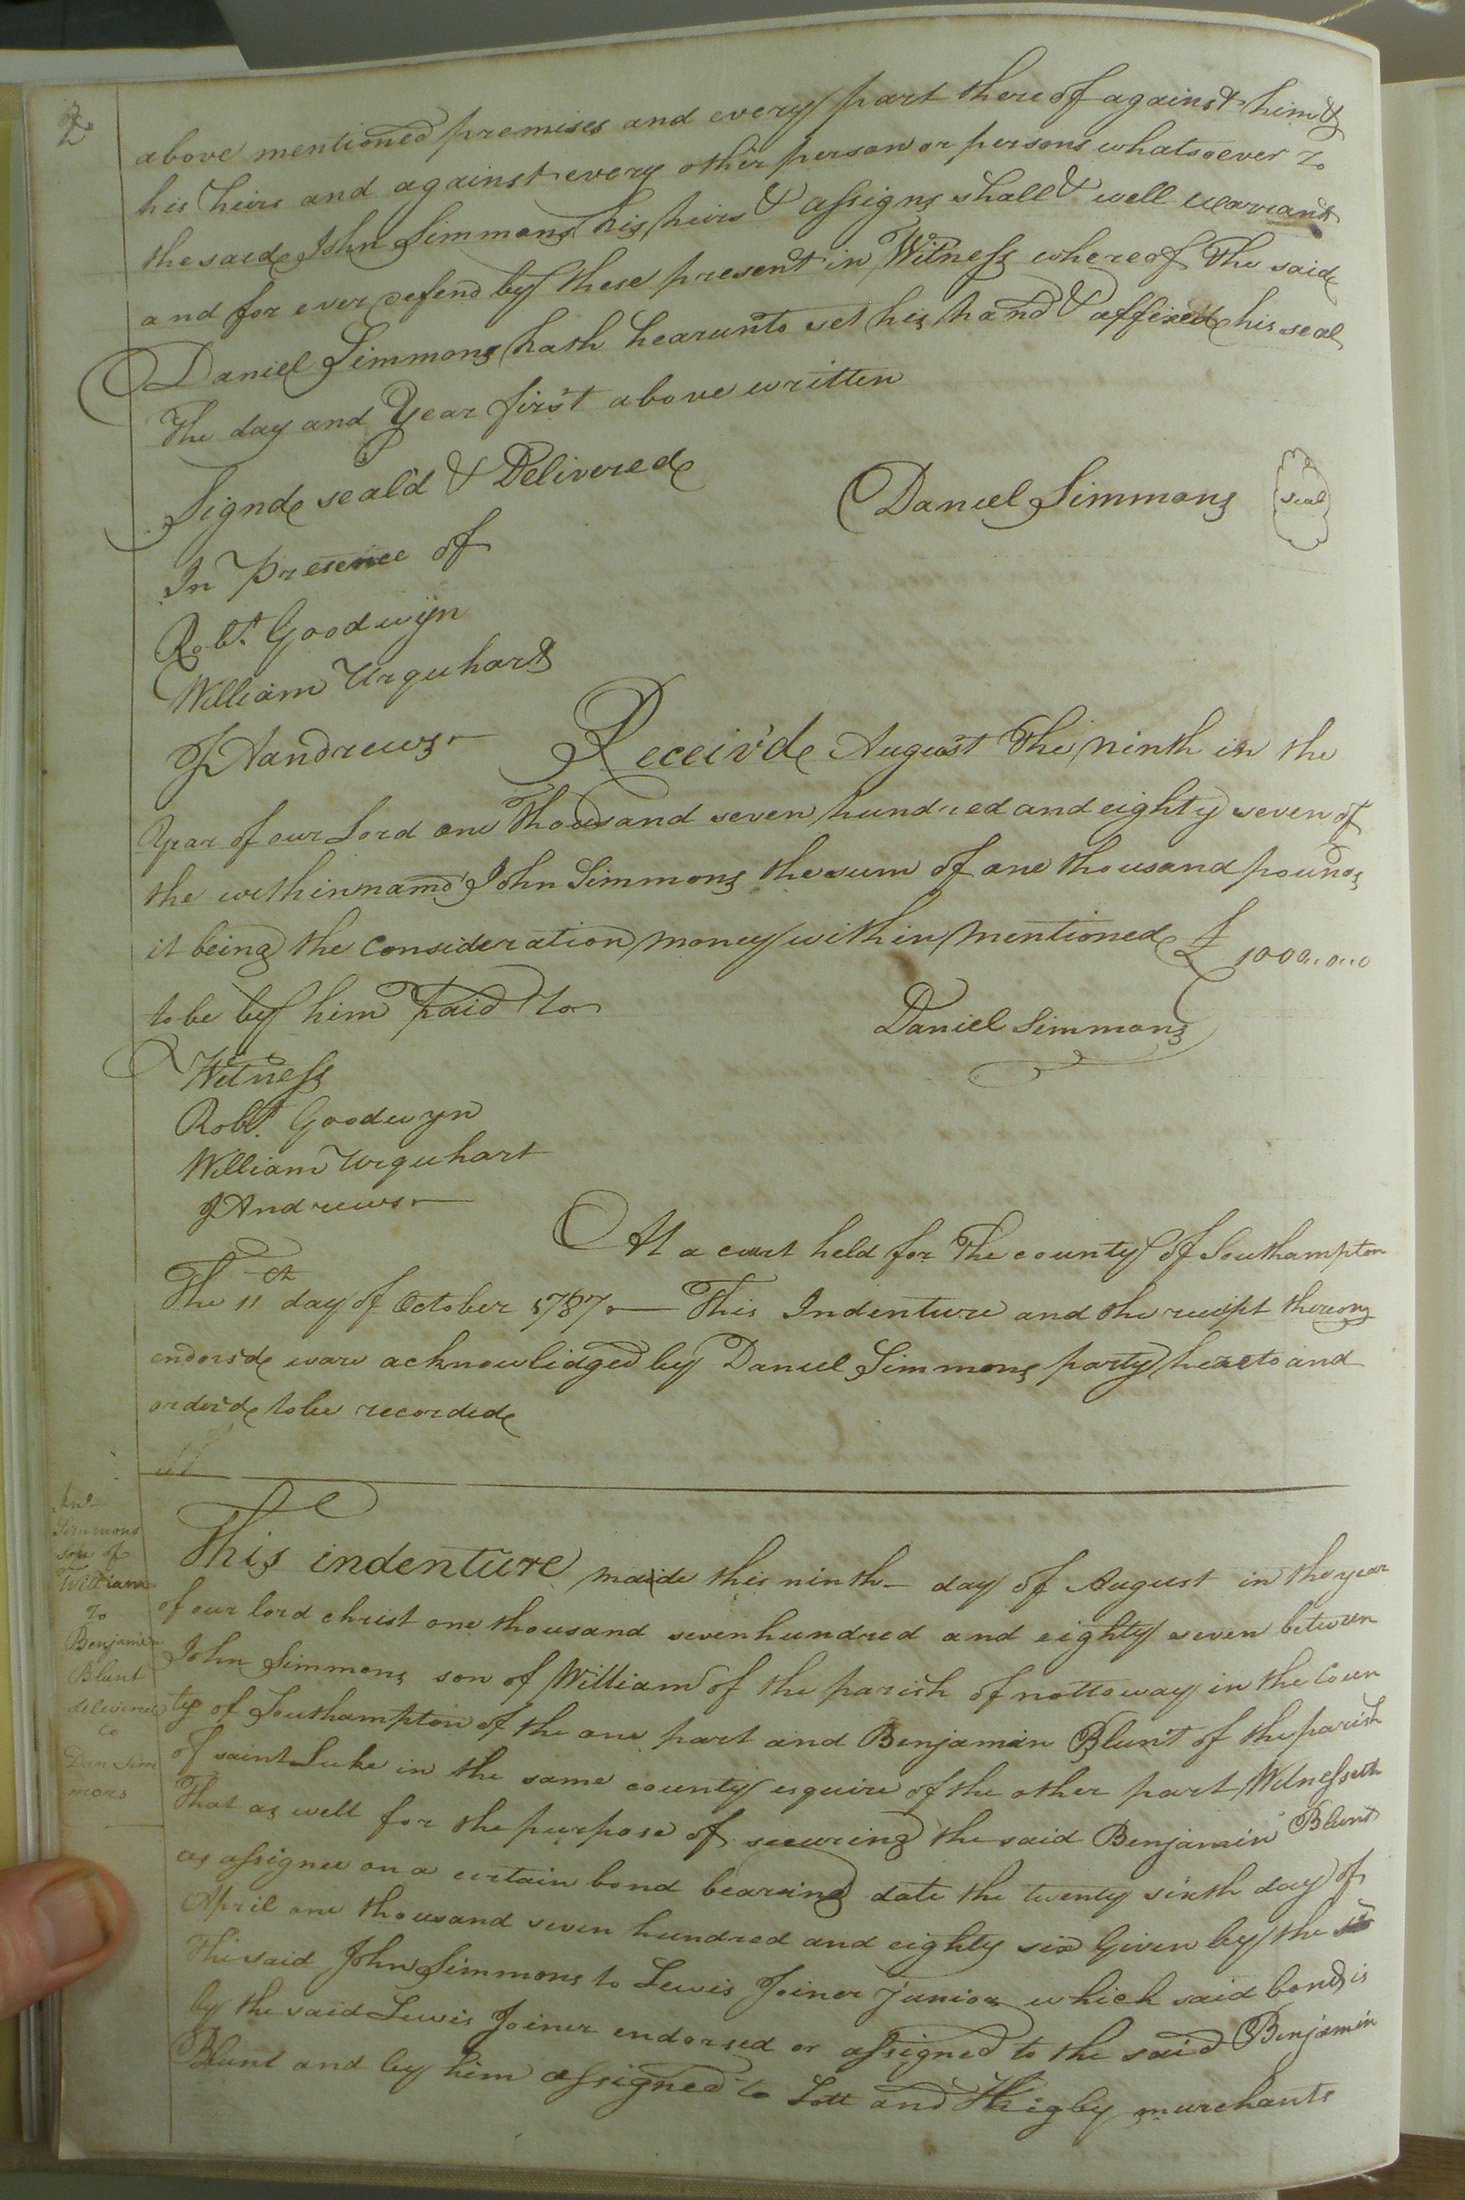 2
above mentioned premises and every part thereof against him &
his heirs and against every other person or persons whatsoever to
the said John Simmons his heirs & assigns shall & will warrant
and for ever defend by these present in Witness whereof The said
Daniel Simmons hath hearunto set his hand & affixed his seal
The day and Year first above written
Signd seal'd & Delivered
Daniel Simmons
Seal
In presence of
Robt. Goodwyn
William Urquhart
J Andrews
Receiv'd August The ninth in the
Year of our Lord one Thousand seven hundred and eighty seven of
the within nam'd John Simmons the sum of one thousand pounds
it being the consideration money within mentioned £ 1000..0..0
to be by him paid to
Daniel Simmons
Witness
Robt. Goodwyn
William Urquhart
J Andrews
At a court held for The county of Southampton
The 11th day of October 1787 — This Indenture and the receipt thereon
endors'd ware acknowlidged by Daniel Simmons party hereto and
order'd to be recorded
Jno.
Simmons
son of
William
To
Benjamin
Blunt
delivered
to
Dan Sim
mons
This indenture made this ninth day of August in the year
of our lord christ one thousand seven hundred and eighty seven between
John Simmons son of William of the parish of nottoway in the Coun
ty of Southampton of the one part and Benjamin Blunt of the parish
of saint Luke in the same county esquire of the other part Witnesseth
That as well for the purpose of securing the said Benjamin Blunt
as assignee on a certain bond bearing date the twenty sixth day of
April one thousand seven hundred and eighty six Given by the
The said John Simmons to Lewis Joiner Junior which said bond is
by the said Lewis Joiner endorsed or assigned to the said Benjamin
Blunt and by him assigned to Lott and Higby murchants